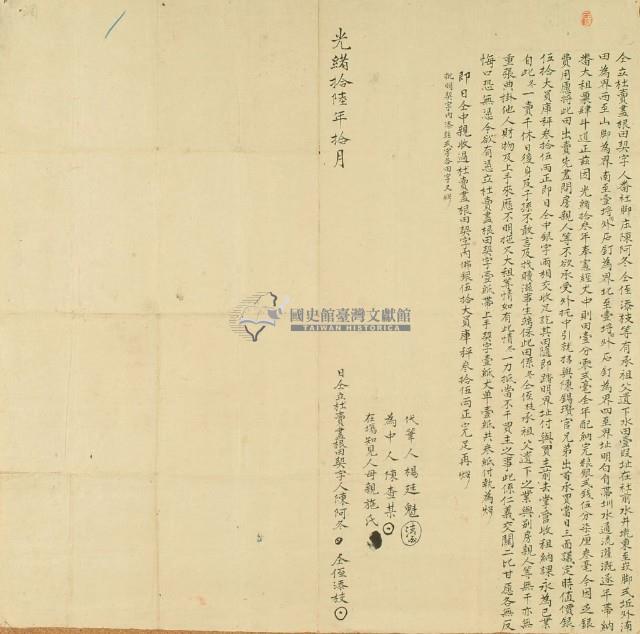 仝立杜賣盡根田契字人番社脚庄陳阿冬仝侄添枝等有承祖父遺下水田壹段址在社前水井墘東至崁
田為界西至山脚為界南至壹埒外石釘為界北至壹埒外石釘為界四至界址明白自帶圳水通流灌溉逐年帶納
番大租粟肆斗道正茲因光緒拾叁年奉憲經丈中則田壹分零
費用愿將此田出賣先盡問房親人等不欲承受外托中引就
伍拾大員庫秤叁拾伍兩正即日仝中銀字兩相交收足訖其田隨即踏明界址付與買主前去掌管收租納課永為己業
自此冬一賣千休日後身及子孫不敢言及找贖滋事生端保此田係冬仝侄枝承祖父遺下之業與別房親人等無干亦無
重張典掛他人財物及上手來歷不明拖欠大租等情如有此情冬一力抵當不干買主之事此係仁義交關二比甘愿各無反
悔口恐無憑今欲有憑立杜賣盡根田契字壹紙帶上手契字壹紙丈單壹紙共叁紙付執為炤
即日仝中親收過杜賣盡根田契字內佛銀伍拾大員庫秤叁拾伍兩正完足再炤
代筆人楊廷魁
為中人陳查某
在場知見人母親施氏
光緒拾陸年拾月
日仝立杜賣盡根田契字人陳阿冬 仝侄添枝
國史館臺灣文獻館
TAIWAN HISTORICA